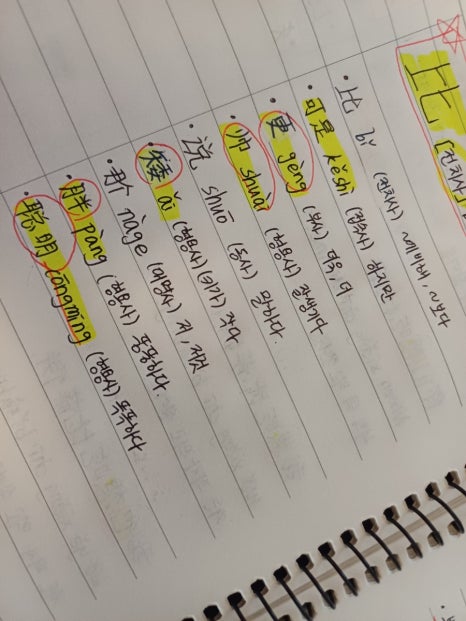 比 [전치사]
· 比 bǐ (전치사) ~보다, ~에 비해
· 可是 kěshì (접속사) 하지만
· 更 gèng (부사) 더욱, 더
· 帅 shuài (형용사) 잘생기다
· 说 shuō (동사) 말하다.
· 矮 ǎi (형용사) (키가) 작다
· 那个 nàge (대명사) 저, 저것
· 胖 pàng (형용사) 뚱뚱하다.
· 聪明 cōngmíng (형용사) 똑똑하다